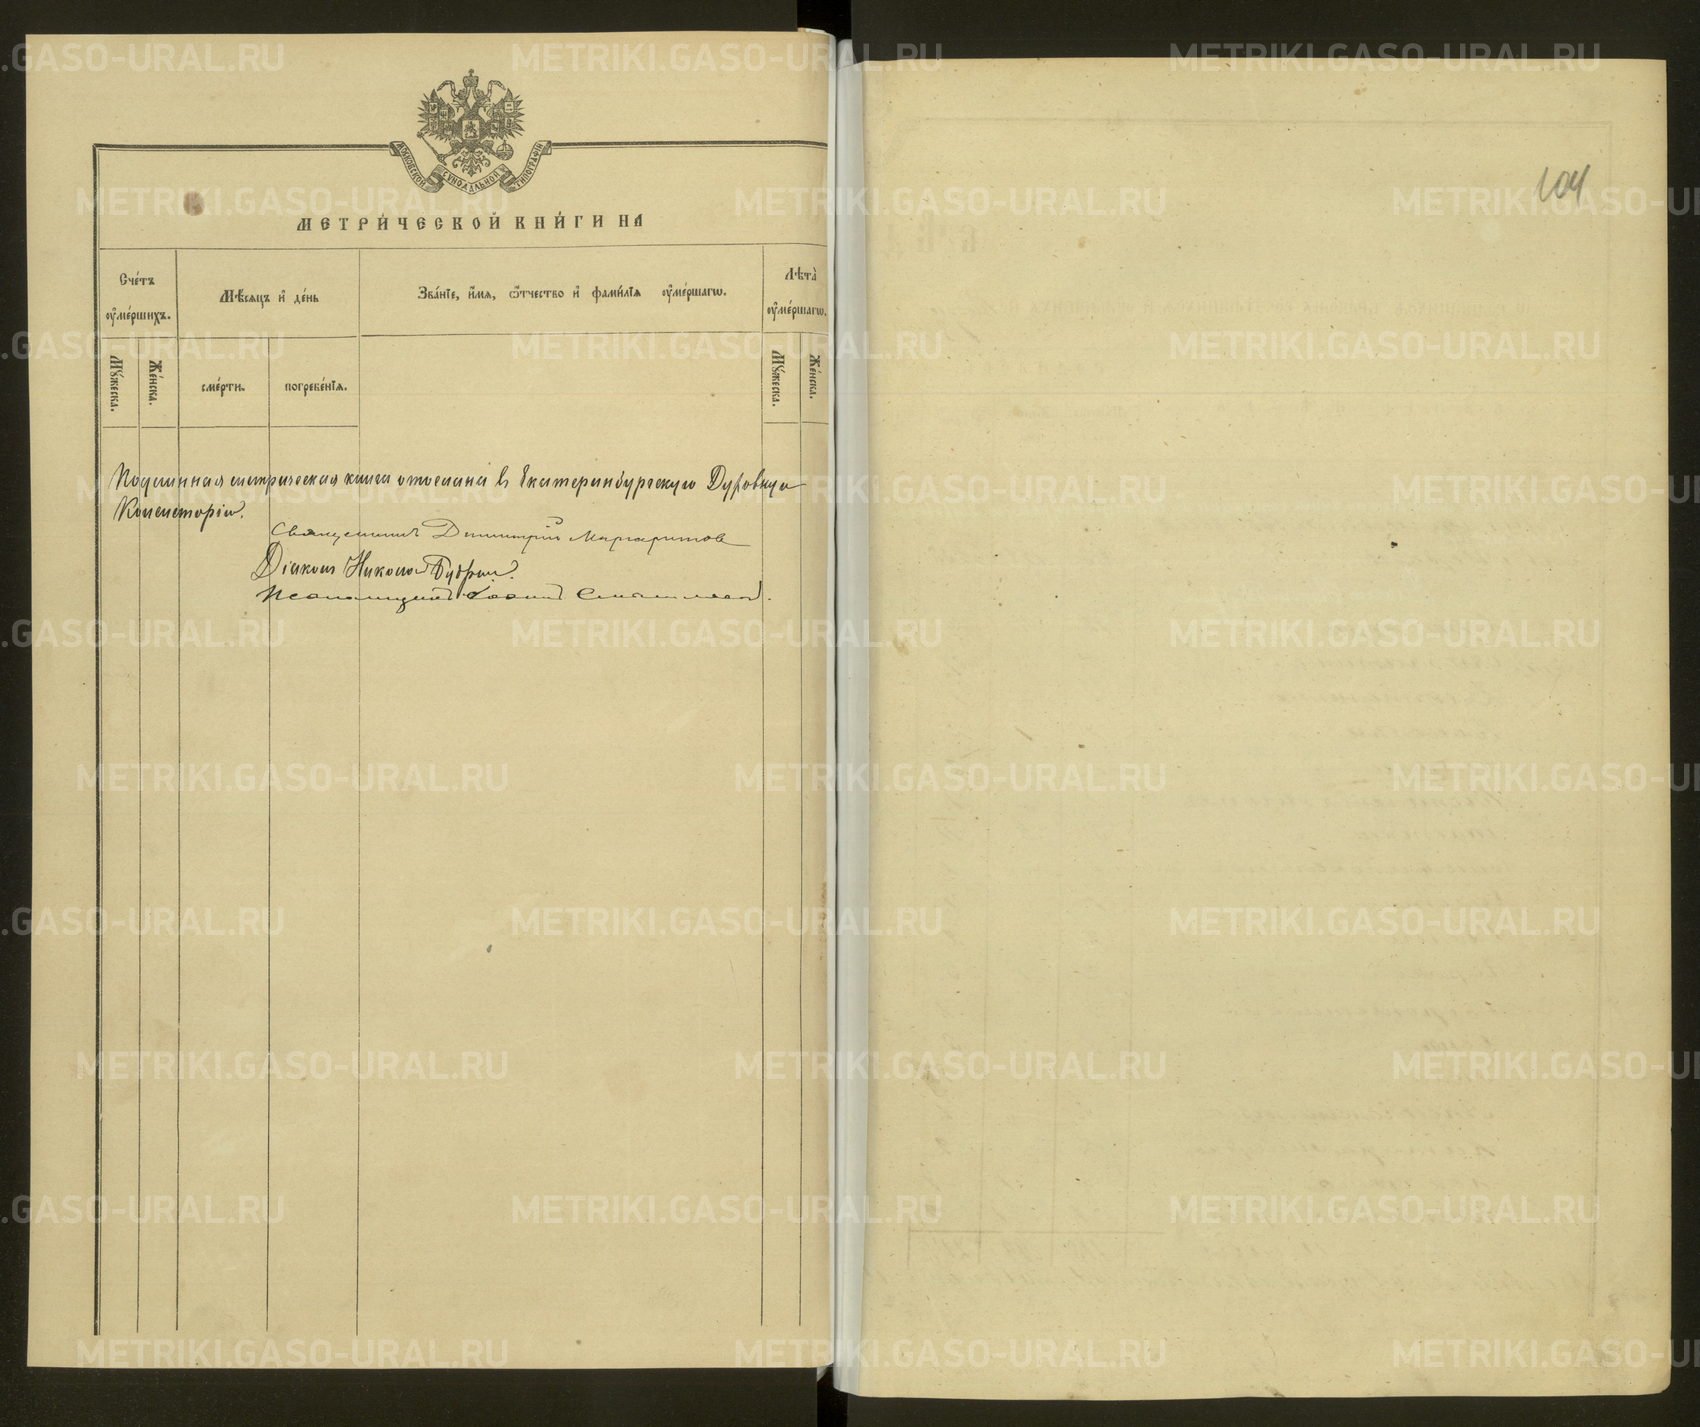 МОСКОВСКОЙ СѴНОДАЛЬНОЙ ТИПОГРАФІИ
МЕТРИ́ЧЕСКОЙ КНИ́ГИ НА
Сче́тъ ᲂу҆ме́ршихъ.
Мѣ́сяцъ и҆ де́нь
Зва́нїе, и҆́мя, ѻ҆́тчество и҆ фами́лїя ᲂу҆ме́ршагѡ.
Лѣта̀ ᲂу҆ме́ршагѡ.
Мꙋ́жеска.
Же́нска.
сме́рти.
погребе́нїя.
Мꙋ́жеска.
Же́нска.
Подлинная метрическая книга отослана въ Екатеринбургскую Духовную
Консисторію.
Священникъ Димитрій Маргаритовъ
Діаконъ Николай
Псаломщикъ Іоаннъ
104
METRIKI.GASO-URAL.RU